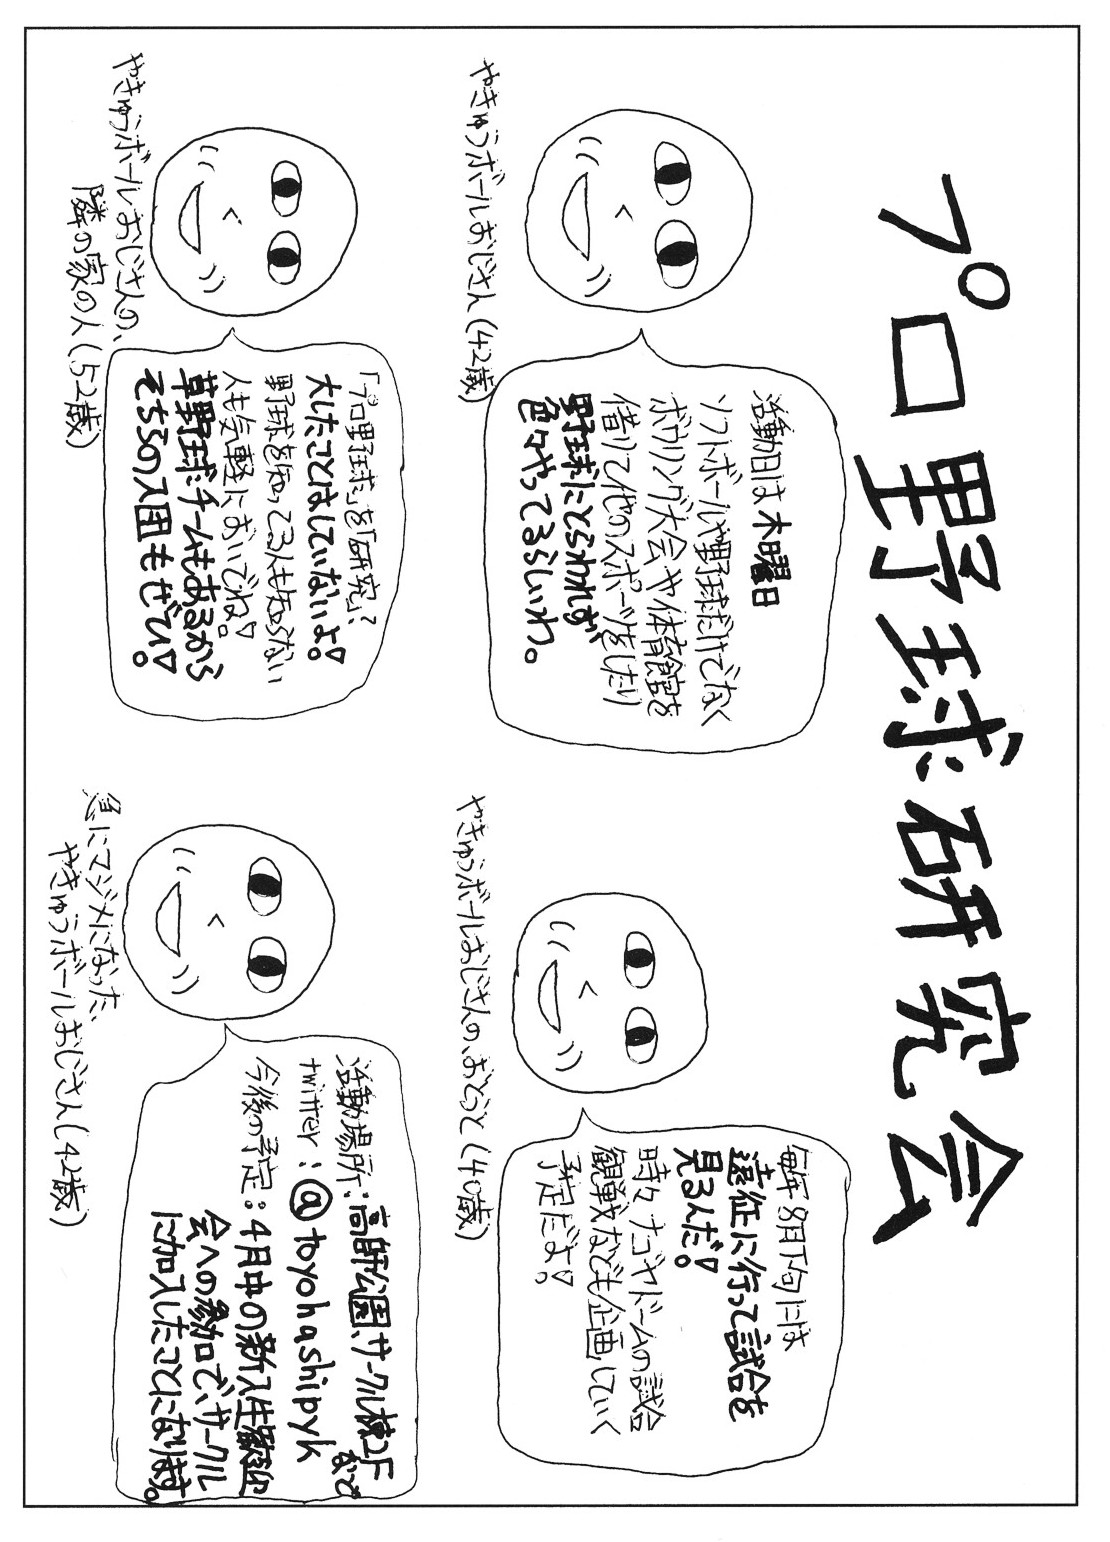 プロ野球研究会
活動日は木曜日
ソフトボールや野球だけでなく
ボウリング大会や体育館を
借りて他のスポーツをしたり
野球にとらわれず
色々やってるらしいわ。
やきゅうボールおじさん(42歳)
毎年8月下旬には
遠征に行って試合を
見るんだ!
時々ナゴヤドームの試合
観戦なども企画していく
予定だよ!
やきゅうボールおじさんの、おとうと(40歳)
「プロ野球」を「研究」?
大したことはしていないよ!
野球を知ってる人も知らない
人も気軽においでね!
草野球チームもあるから
そちらの入団もぜひ!
やきゅうボールおじさんの、
隣の家の人(52歳)
活動場所:高師公園、サークル棟2Fなど
twitter:@toyohashipyk
今後の予定:4月中の新入生歓迎
会への参加で、サークル
に加入したことになります。
急にマジメになった、
やきゅうボールおじさん(42歳)